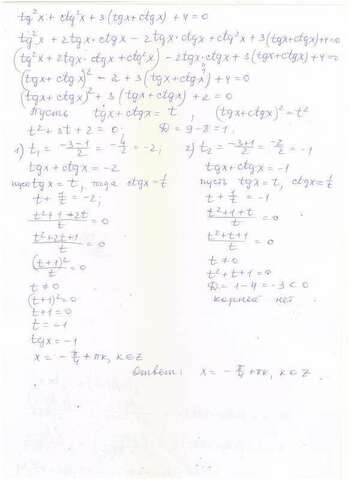 tg²x + ctg²x + 3(tgx + ctgx) + 4 = 0
tg²x + 2tgx · ctgx − 2tgx · ctgx + ctg²x + 3(tgx + ctgx) + 4 = 0
(tg²x + 2tgx · ctgx + ctg²x) − 2tgx · ctgx + 3(tgx + ctgx) + 4 = 0
(tgx + ctgx)² − 2 + 3(tgx + ctgx) + 4 = 0
(tgx + ctgx)² + 3(tgx + ctgx) + 2 = 0
Пусть tgx + ctgx = t, (tgx + ctgx)² = t²
t² + 3t + 2 = 0. D = 9 − 8 = 1.
1) t₁ = (−3−1)/2 = −4/2 = −2;
tgx + ctgx = −2
пусть tgx = t, тогда ctgx = 1/t
t + 1/t = −2;
(t² + 1 + 2t)/t = 0
(t² + 2t + 1)/t = 0
(t + 1)²/t = 0
t ≠ 0
(t + 1)² = 0
t + 1 = 0
t = −1
tgx = −1
x = −π/4 + πk, k ∈ Z
2) t₂ = (−3+1)/2 = −2/2 = −1
tgx + ctgx = −1
пусть tgx = t, ctgx = 1/t
t + 1/t = −1
(t² + 1 + t)/t = 0
(t² + t + 1)/t = 0
t ≠ 0
t² + t + 1 = 0
D = 1 − 4 = −3 < 0
корней нет.
Ответ: x = −π/4 + πk, k ∈ Z.